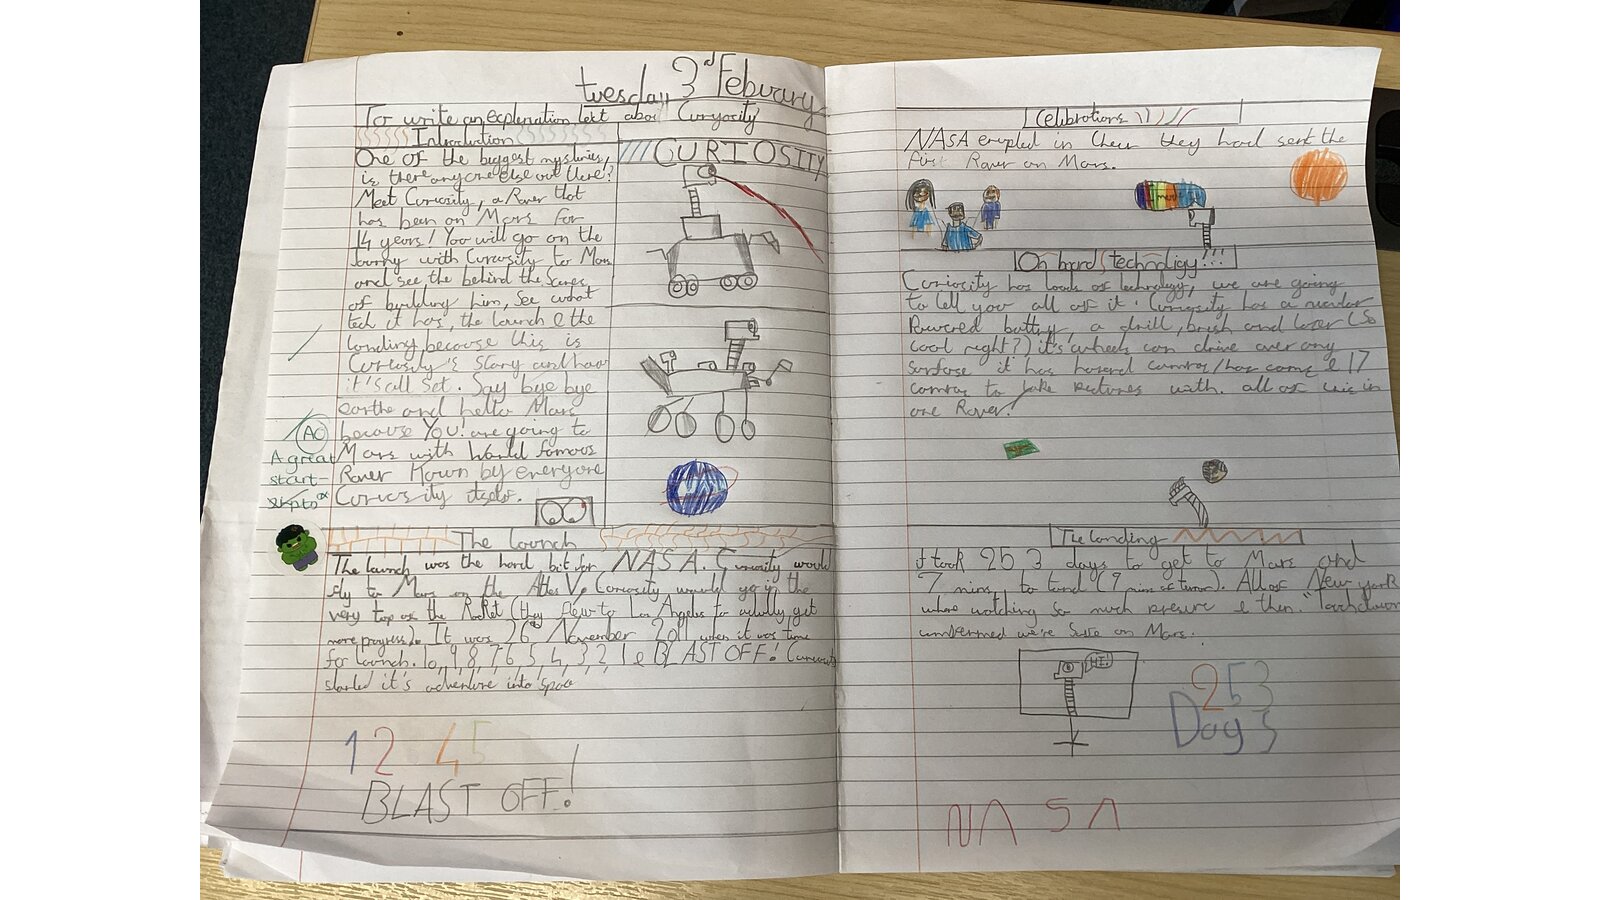 tuesday 3rd Febuary
To write an explenation text about Curyosity
Introduction
One of the biggest mysteries,
is there anyone else out there?
Meet Curiosity, a Rover that
has been on Mars for
14 years! You will go on the
journy with Curiosity to Mars
and see the behind the Scenes
of building him, See what
tech it has, the launch & the
landing because this is
Curiosity's Story and how
it's all Set. Say bye bye
earthe and hello Mars
because YOU! are going to
Mars with World famous
Rover Kown by everyone
Curiosity itself.
AO
A great
start
CURIOSITY
The launch
The launch was the hard bit for NASA. Curiosity would
fly to Mars on the Atlas V, Curiosity would go in the
very top of the Rocket (they flew to Los Angeles to actully get
more progress). It was 26th November 2011 when it was time
for launch. 10, 9, 8, 7, 6, 5, 4, 3, 2, 1 & BLAST OFF! Curiosity
started it's adventure into Space
1 2 4 5 !
BLAST OFF!
Celibrations
NASA erupted in Cheer they had sent the
first Rover on Mars.
On bord technoligy!!!
Curiosity has loads of technology, we are going
to tell you all of it. Curiosity has a
Powered battery, a drill, brush and lazer (So
cool right?) it's wheels can drive over any
surfase it has hazard camras & 17
camras to take pictures with. all of in
one Rover!
The landing
it took 253 days to get to Mars and
7 mins to land (7 mins of terror). All of New york
where watching So much presure & then "Tochdown
confermed we're Safe on Mars.
HI!
253
Days
NASA